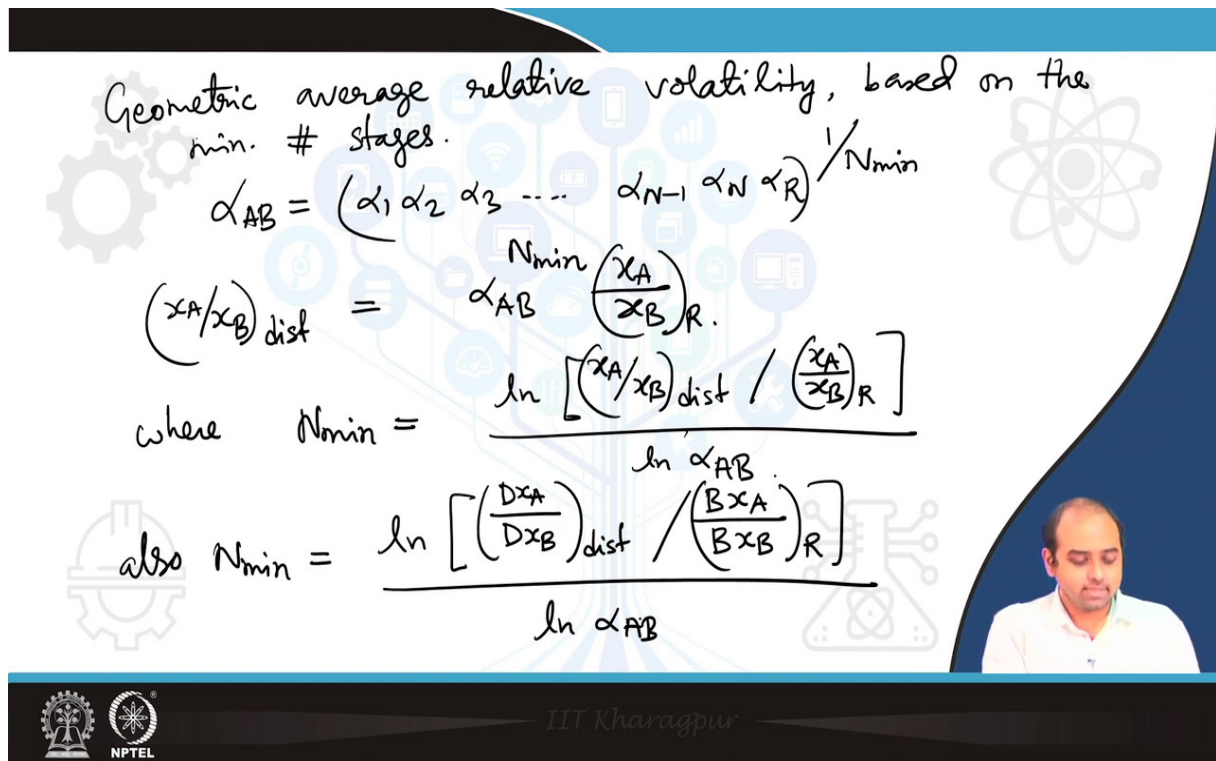 Geometric average relative volatility, based on the
min. # stages.
α_AB = (α_1 α_2 α_3 ---- α_N-1 α_N α_R)^1/Nmin
(x_A/x_B)_dist = α_AB^Nmin (x_A/x_B)_R.
where Nmin = ln [(x_A/x_B)_dist / (x_A/x_B)_R] / ln α_AB.
also Nmin = ln [(Dx_A/Dx_B)_dist / (Bx_A/Bx_B)_R] / ln α_AB
IIT Kharagpur
NPTEL